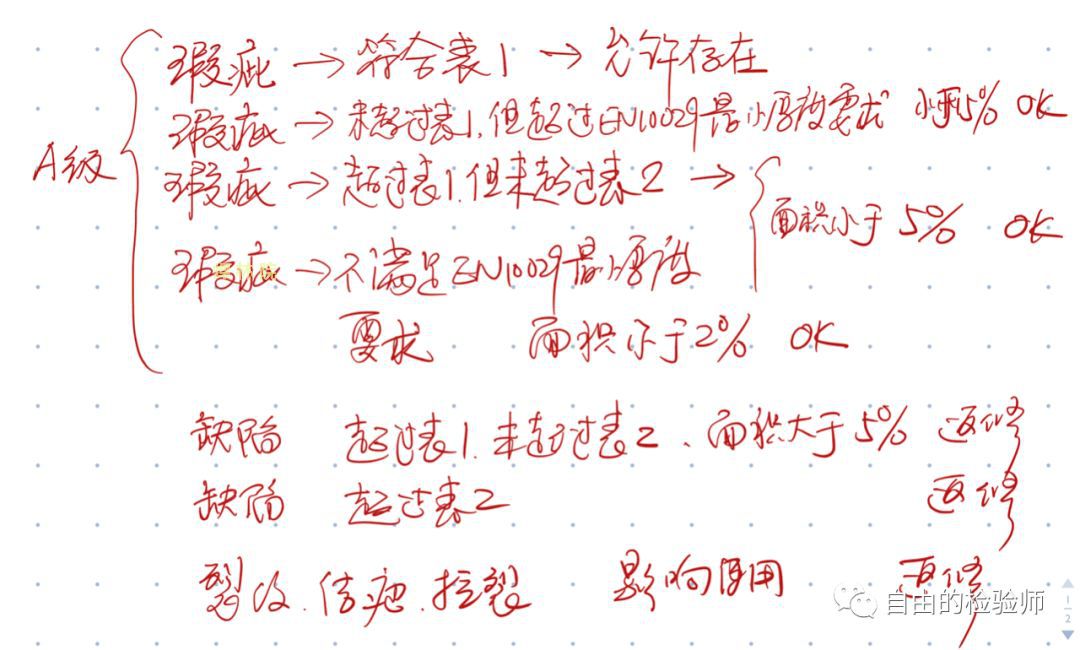 A级
瑕疵 → 符合表1 → 允许存在
瑕疵 → 未超过表1,但超过EN10029最小厚度要求 小于5% OK
瑕疵 → 超过表1,但未超过表2 → 面积小于5% OK
瑕疵 → 不满足EN10029最小厚度
要求 面积小于2% OK
缺陷 超过表1.未超过表2、面积大于5% 返修
缺陷 超过表2 返修
裂纹.结疤.拉裂 影响使用 返修
自由的检验师
1
2